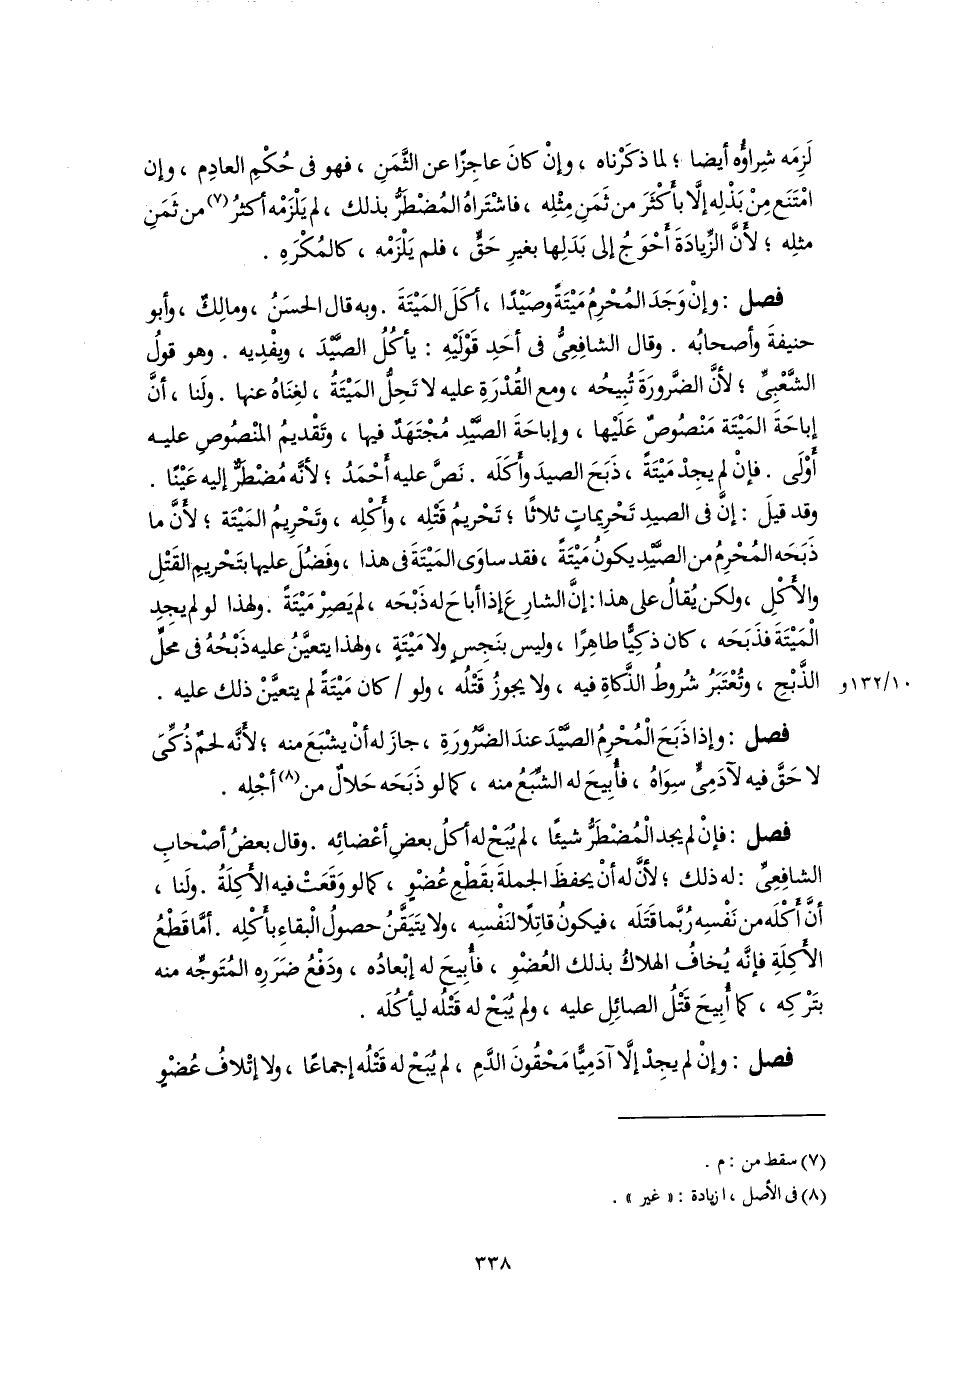 لَزِمَه شِراؤُه أيضا ؛ لما ذكَرْناه ، وإنْ كانَ عاجِزًا عن الثَّمَنِ ، فهو فى حُكْمِ العادِم ، وإن
امْتَنَع مِنْ بَذْلِه إلَّا بأَكْثَرَ من ثَمَنِ مِثْلِه ، فاشْتَراهُ المُضْطَرُّ بذلك ، لم يَلْزَمْه أكثرُ (٧) من ثَمَنِ
مثلِه ؛ لأَنَّ الزِّيادَةَ أُحْوِجَ إلى بَدَلِها بغيرِ حَقٍّ ، فلم يَلْزَمْه ، كالمُكْرَهِ .
فصل : وإنْ وَجَدَ المُحْرِمُ مَيْتَةً وصَيْدًا ، أكَلَ المَيْتَةَ . وبه قال الحسَنُ ، ومالِكٌ ، وأبو
حنيفةَ وأصحابُه . وقال الشافِعِىُّ فى أحَدِ قَوْلَيْهِ : يأكُلُ الصَّيْدَ ، ويفْدِيه . وهو قولُ
الشَّعْبِىِّ ؛ لأنَّ الضَّرورَةَ تُبِيحُه ، ومع القُدْرَةِ عليه لا تَحِلُّ المَيْتَةُ ، لغِنَاهُ عنها . ولَنا ، أنَّ
إباحَةَ المَيْتَة مَنْصُوصٌ عَلَيْها ، وإباحَةَ الصَّيْدِ مُجْتَهَدٌ فيها ، وتَقْديمُ المْنصُوصِ عليه
أَوْلَى . فإنْ لم يجِدْ مَيْتَةً ، ذَبَحَ الصيدَ وأَكَلَه . نَصَّ عليه أَحْمَدُ ؛ لأنَّه مُضْطَرٌّ إليه عَيْنًا .
وقد قيلَ : إنَّ فى الصيدِ تَحْرِيماتٍ ثلاثًا ؛ تَحْرِيمُ قَتْلِه ، وأَكْلِه ، وتَحْرِيمُ المَيْتَة ؛ لأنَّ ما
ذَبَحَه المُحْرِمُ من الصَّيْدِ يكونُ مَيْتَةً ، فقد ساوَى المَيْتَةَ فى هذا ، وفَضُلَ عليها بتَحْريمِ القَتْلِ
والأَكْلِ ، ولكن يُقالُ على هذا : إنَّ الشارِعَ إذا أباحَ له ذَبْحَه ، لم يَصِرْ مَيْتَةً . ولهذا لو لم يجِدِ
الْمَيْتَةَ فذَبَحَه ، كان ذكِيًّا طاهِرًا ، وليس بنَجِسٍ ولا مَيْتَةٍ ، ولهذا يتعيَّنُ عليه ذَبْحُهُ فى محلِّ
الذَّبْحِ ، وتُعْتَبَرُ شروطُ الذَّكاةِ فيه ، ولا يجوزُ قَتْلُه ، ولو / كان مَيْتَةً لم يتعيَّنْ ذلك عليه . ١٣٢/١٠و
فصل : وإذا ذَبَحَ الْمُحْرِمُ الصَّيْدَ عندَ الضَّرُورَةِ ، جازَ له أنْ يشْبَعَ منه ؛ لأَنَّه لحمٌ ذُكِّىَ
لا حَقَّ فيه لآدَمِىٍّ سِوَاهُ ، فأُبِيحَ له الشِّبَعُ منه ، كما لو ذَبَحَه حَلالٌ من (٨) أجْلِه .
فصل : فإنْ لم يجد الْمُضْطَرُّ شيئًا ، لم يُبَحْ له أكلُ بعضِ أعْضائِه . وقال بعضُ أصْحابِ
الشافِعِىِّ : له ذلك ؛ لأنَّ له أنْ يحفظَ الجملةَ بقَطْعِ عُضْوٍ ، كما لو وَقَعَتْ فيه الأَكِلَةُ . ولَنا ،
أنَّ أكْلَه من نَفْسِه رُبَّما قَتَلَه ، فيكونُ قاتِلًا لنَفْسِه ، ولا يَتَيَقَّنُ حصولُ الْبقاءِ بأَكْلِه . أمَّا قَطْعُ
الأكِلَةِ فإنَّه يُخافُ الهلاكُ بذلك العُضْوِ ، فأُبِيحَ له إبْعادُه ، ودَفْعُ ضَرَرِه المُتَوجِّه منه
بتَرْكِه ، كما أُبِيحَ قَتْلُ الصائِلِ عليه ، ولم يُبَحْ له قَتْلُه ليأكُلَه .
فصل : وإنْ لم يجِدْ إلَّا آدَمِيًّا مَحْقُونَ الدَّمِ ، لم يُبَحْ له قَتْلُه إجماعًا ، ولا إتْلافُ عُضْوٍ
(٧) سقط من : م .
(٨) فى الأصل ، ا زيادة : « غير » .
٣٣٨